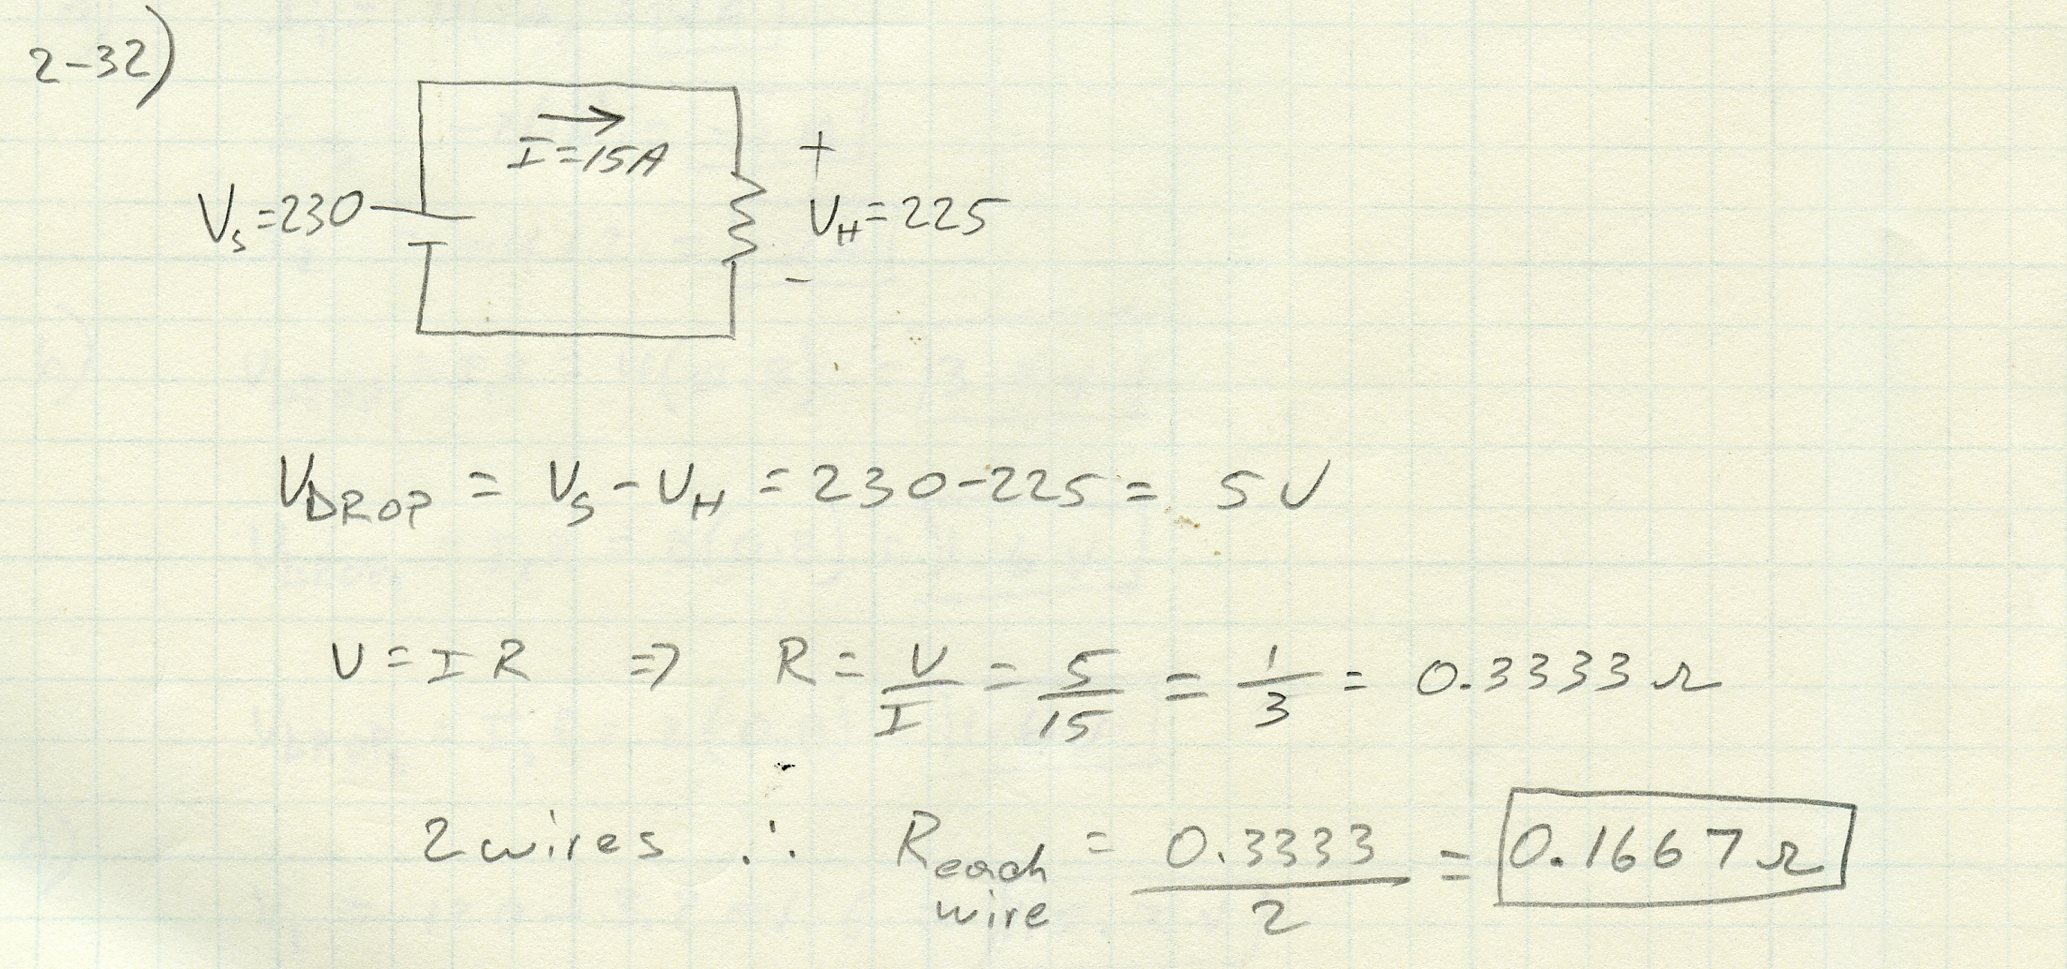 2-32)
I=15A
+
V_S=230
V_H=225
-
V_DROP = V_S - V_H = 230-225 = 5V
V=IR ⇒ R = V/I = 5/15 = 1/3 = 0.3333 Ω
2 wires ∴ R_each wire = 0.3333/2 = 0.1667 Ω